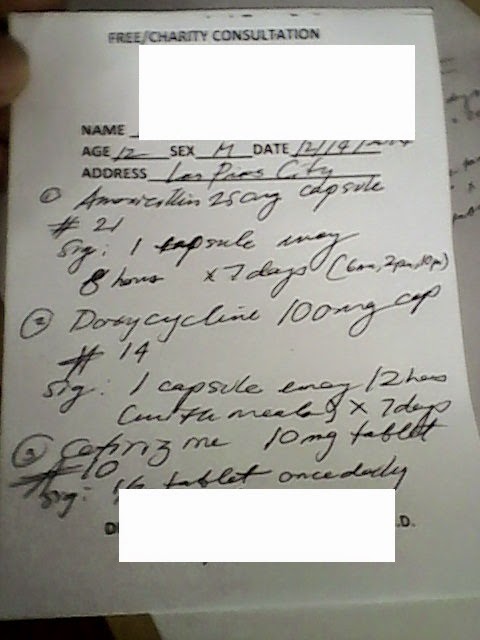 FREE/CHARITY CONSULTATION
NAME
AGE 12 SEX M DATE 12/14/2014
ADDRESS Las Pinas City
① Amoxicillin 250mg capsule
# 21
Sig: 1 capsule every
8 hours x 7 days (6am, 2pm, 10pm)
② Doxycycline 100mg cap
# 14
Sig: 1 capsule every 12 hours
(with meals) x 7 days
③ Cetirizine 10mg tablet
# 10
Sig: tablet once daily
D.